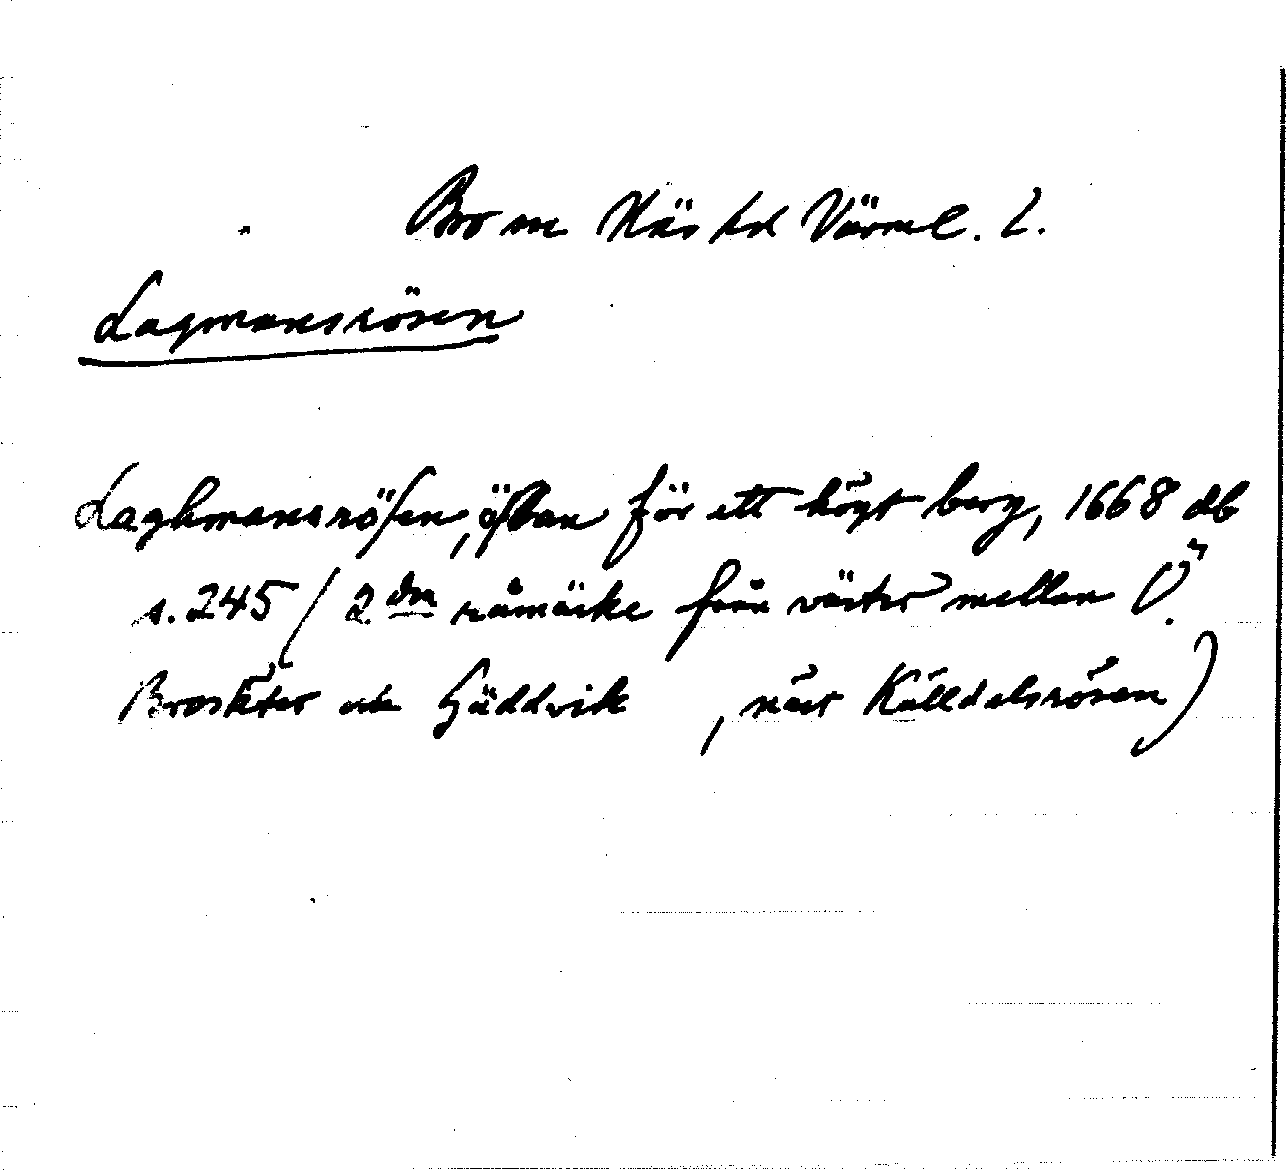 Bro sn Näs hd Värml. l.
Lagmansrösen
Laghmansrösen, östan för ett högt berg, 1668 db
s. 245 (2dra råmärke från väster mellan Ö.
Broskter och Gäddvik , näst Källdalsrösen)